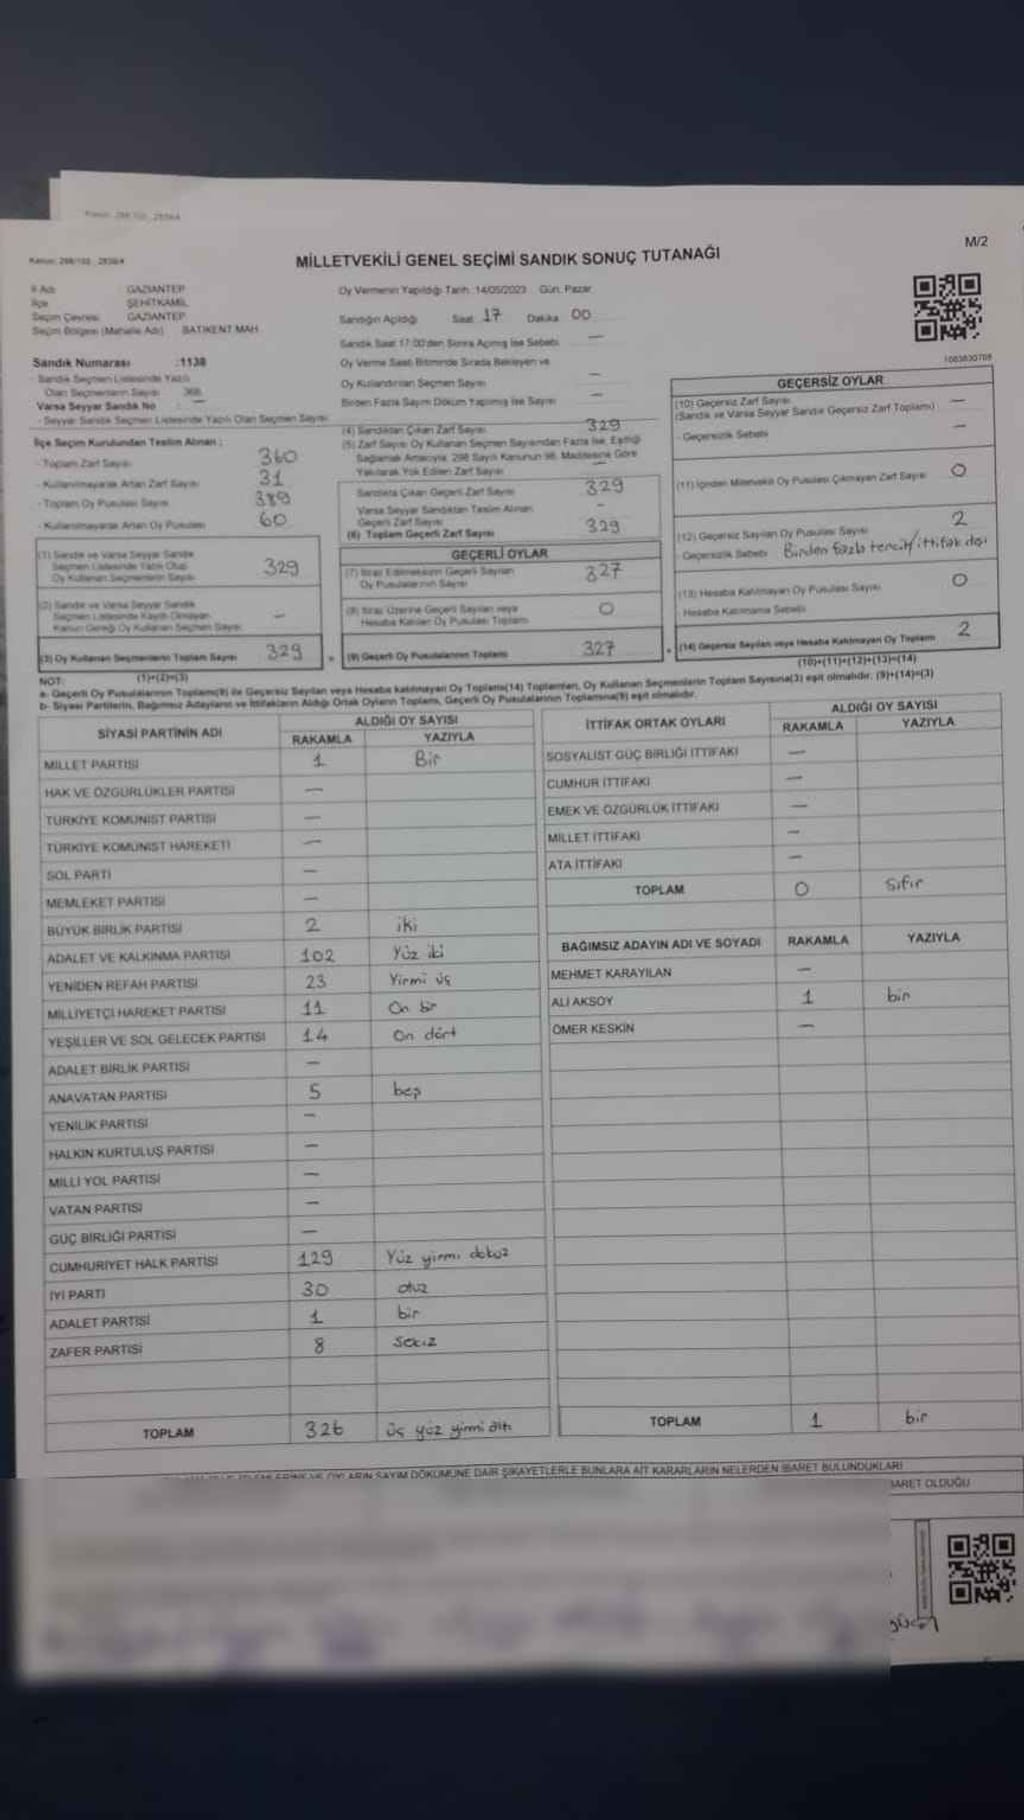 Kanun: 298/105 , 2839/4
M/2
MİLLETVEKİLİ GENEL SEÇİMİ SANDIK SONUÇ TUTANAĞI
İl Adı GAZİANTEP
İlçe ŞEHİTKAMİL
Seçim Çevresi GAZİANTEP
Seçim Bölgesi (Mahalle Adı) BATIKENT MAH.
Oy Vermenin Yapıldığı Tarih :14/05/2023 Gün: Pazar
Sandığın Açıldığı Saat 17 Dakika 00
Sandık Saat 17:00'den Sonra Açılmış İse Sebebi —
Oy Verme Saati Bitiminde Sırada Bekleyen ve
Oy Kullandırılan Seçmen Sayısı —
Birden Fazla Sayım Döküm Yapılmış İse Sayısı —
Sandık Numarası :1138
- Sandık Seçmen Listesinde Yazılı
Olan Seçmenlerin Sayısı 368
Varsa Seyyar Sandık No : —
- Seyyar Sandık Seçmen Listesinde Yazılı Olan Seçmen Sayısı
İlçe Seçim Kurulundan Teslim Alınan :
- Toplam Zarf Sayısı 360
- Kullanılmayarak Artan Zarf Sayısı 31
- Toplam Oy Pusulası Sayısı 389
- Kullanılmayarak Artan Oy Pusulası 60
(1) Sandık ve Varsa Seyyar Sandık
Seçmen Listesinde Yazılı Olup
Oy Kullanan Seçmenlerin Sayısı 329
(2) Sandık ve Varsa Seyyar Sandık
Seçmen Listesinde Kayıtlı Olmayan
Kanun Gereği Oy Kullanan Seçmen Sayısı —
(3) Oy Kullanan Seçmenlerin Toplam Sayısı 329
(1)+(2)=(3)
(4) Sandıktan Çıkan Zarf Sayısı 329
(5) Zarf Sayısı Oy Kullanan Seçmen Sayısından Fazla İse, Eşitliği
Sağlamak Amacıyla, 298 Sayılı Kanunun 98. Maddesine Göre
Yakılarak Yok Edilen Zarf Sayısı —
Sandıkta Çıkan Geçerli Zarf Sayısı 329
Varsa Seyyar Sandıktan Teslim Alınan
Geçerli Zarf Sayısı -
(6) Toplam Geçerli Zarf Sayısı 329
GEÇERLİ OYLAR
(7) İtiraz Edilmeksizin Geçerli Sayılan
Oy Pusulalarının Sayısı 327
(8) İtiraz Üzerine Geçerli Sayılan veya
Hesaba Katılan Oy Pusulası Toplamı 0
(9) Geçerli Oy Pusulalarının Toplamı 327
1083830708
GEÇERSİZ OYLAR
(10) Geçersiz Zarf Sayısı —
(Sandık ve Varsa Seyyar Sandık Geçersiz Zarf Toplamı)
- Geçersizlik Sebebi —
(11) İçinden Milletvekili Oy Pusulası Çıkmayan Zarf Sayısı 0
(12) Geçersiz Sayılan Oy Pusulası Sayısı 2
Geçersizlik Sebebi Birden fazla tercih/ittifak dışı
(13) Hesaba Katılmayan Oy Pusulası Sayısı 0
Hesaba Katılmama Sebebi
(14) Geçersiz Sayılan veya Hesaba Katılmayan Oy Toplamı 2
(10)+(11)+(12)+(13)=(14)
NOT:
a- Geçerli Oy Pusulalarının Toplamı(9) ile Geçersiz Sayılan veya Hesaba katılmayan Oy Toplamı(14) Toplamları, Oy Kullanan Seçmenlerin Toplam Sayısına(3) eşit olmalıdır. (9)+(14)=(3)
b- Siyasi Partilerin, Bağımsız Adayların ve İttifakların Aldığı Ortak Oyların Toplamı, Geçerli Oy Pusulalarının Toplamına(9) eşit olmalıdır.
SİYASİ PARTİNİN ADI ALDIĞI OY SAYISI
RAKAMLA YAZIYLA
MİLLET PARTİSİ 1 Bir
HAK VE ÖZGÜRLÜKLER PARTİSİ —
TÜRKİYE KOMÜNİST PARTİSİ —
TÜRKİYE KOMÜNİST HAREKETİ —
SOL PARTİ —
MEMLEKET PARTİSİ —
BÜYÜK BİRLİK PARTİSİ 2 iki
ADALET VE KALKINMA PARTİSİ 102 Yüz iki
YENİDEN REFAH PARTİSİ 23 Yirmi üç
MİLLİYETÇİ HAREKET PARTİSİ 11 On bir
YEŞİLLER VE SOL GELECEK PARTİSİ 14 On dört
ADALET BİRLİK PARTİSİ —
ANAVATAN PARTİSİ 5 beş
YENİLİK PARTİSİ —
HALKIN KURTULUŞ PARTİSİ —
MİLLİ YOL PARTİSİ —
VATAN PARTİSİ —
GÜÇ BİRLİĞİ PARTİSİ —
CUMHURİYET HALK PARTİSİ 129 Yüz yirmi dokuz
İYİ PARTİ 30 otuz
ADALET PARTİSİ 1 bir
ZAFER PARTİSİ 8 sekiz
TOPLAM 326 üç yüz yirmi altı
İTTİFAK ORTAK OYLARI ALDIĞI OY SAYISI
RAKAMLA YAZIYLA
SOSYALİST GÜÇ BİRLİĞİ İTTİFAKI —
CUMHUR İTTİFAKI —
EMEK VE ÖZGÜRLÜK İTTİFAKI —
MİLLET İTTİFAKI —
ATA İTTİFAKI —
TOPLAM 0 sıfır
BAĞIMSIZ ADAYIN ADI VE SOYADI RAKAMLA YAZIYLA
MEHMET KARAYILAN —
ALİ AKSOY 1 bir
ÖMER KESKİN —
TOPLAM 1 bir
OYLARIN SAYIM DÖKÜMÜNE DAİR ŞİKAYETLERLE BUNLARA AİT KARARLARIN NELERDEN İBARET BULUNDUKLARI
OLDUĞU